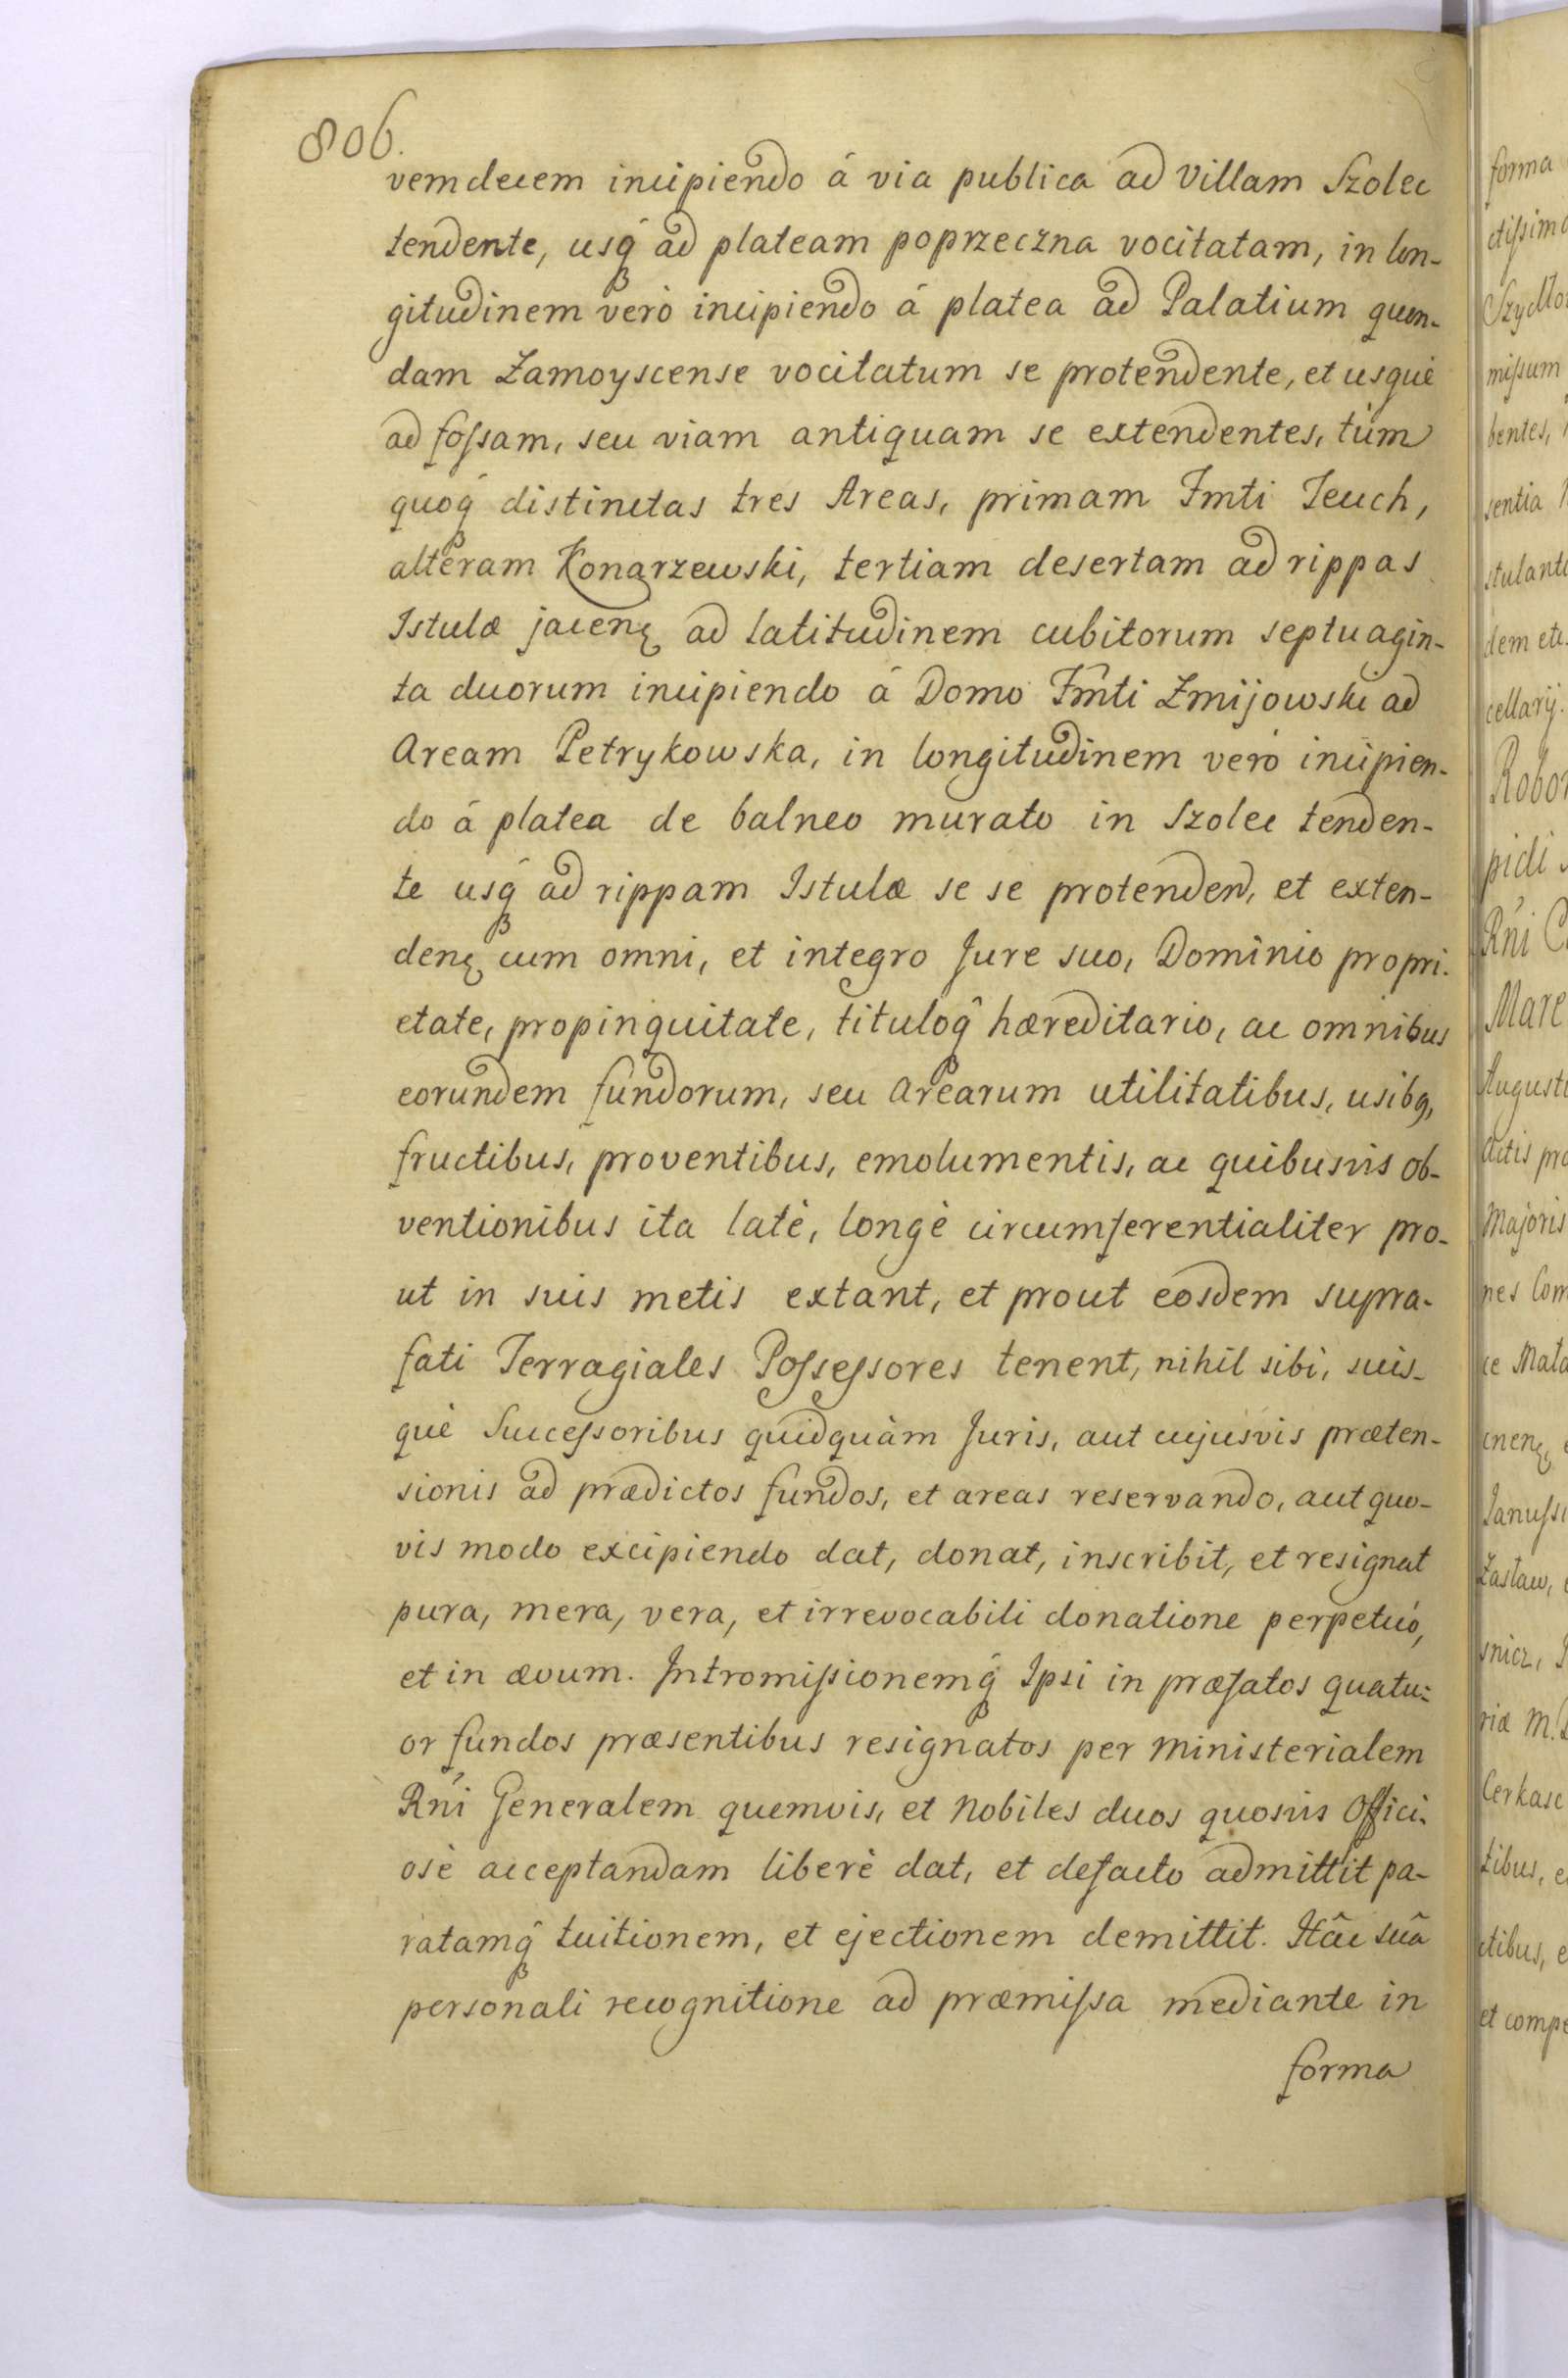 806.
vemdecem incipiendo á via publica ad Villam Szolec
tendente, usq̃ ad plateam poprzeczna vocitatam, in lon-
gitudinem verò incipiendo á platea ad Palatium quon-
dam Zamoyscense vocitatum se protendente, et usquè
ad foſsam, seu viam antiquam se extendentes, tùm
quoq̃ distinctas tres Areas, primam Imti Teuch,
alteram Konarzewski, tertiam desertam ad rippas
Istulæ jacenꝭ ad latitudinem cubitorum septuagin-
ta duorum incipiendo á Domo Im̃ti Zmijowski ad
Aream Petrykowska, in longitudinem verò incipien-
do á platea de balneo murato in Szolec tenden-
te usq̃ ad rippam Istulæ se se protenden, et exten-
denꝭ cum omni, et integro Jure suo, Dominio propri-
etate, propinquitate, tituloq̃ hæreditario, ac omnibus
eorundem fundorum, seu Arearum utilitatibus, usibq,
fructibus, proventibus, emolumentis, ac quibusvis ob-
ventionibus ita latè, longè circumferentialiter pro-
ut in suis metis extant, et prout eosdem supra-
fati Terragiales Poſseſsores tenent, nihil sibi, suis-
què Succeſsoribus quidquàm Juris, aut cujusvis præten-
sionis ad prædictos fundos, et areas reservando, aut quo-
vis modo excipiendo dat, donat, inscribit, et resignat
pura, mera, vera, et irrevocabili donatione perpetuó,
et in ævum. Intromiſsionemq̃ Ipsi in præfatos quatu-
or fundos præsentibus resignatos per Ministerialem
Rńi Generalem quemvis, et Nobiles duos quosvis Offici-
osè acceptandam liberè dat, et defacto admittit pa-
ratamq̃ tuitionem, et ejectionem demittit. Hâc suâ
personali recognitione ad præmiſsa mediante in
forma
forma
miſsum
bentes,
sentia
dem etc.
cellarij.
pidi
Rńi
Majoris
tibus,
ctibus,